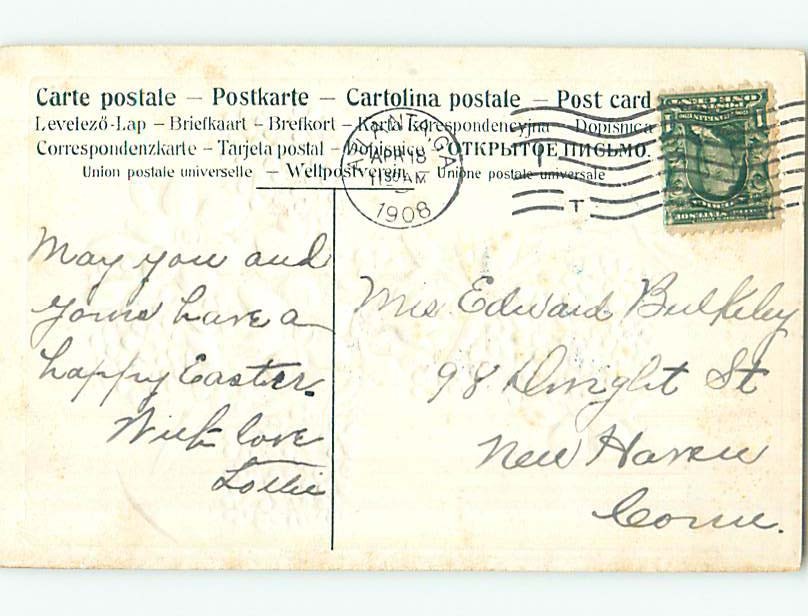 Carte postale – Postkarte – Cartolina postale – Post card
Levelező-Lap – Briefkaart – Brefkort – Karta korespondencyjna – Dopisnica
Correspondenzkarte – Tarjeta postal – Dopisnice – ОТКРЫТОЕ ПИСЬМО.
Union postale universelle – Weltpostverein – Unione postale universale
ATLANTA, GA
APR 18
11 30 AM
1908
T
May you and
yours have a
happy Easter.
With love
Lottie
Mrs Edward Bulkley
98 Dwight St
New Haven
Conn.